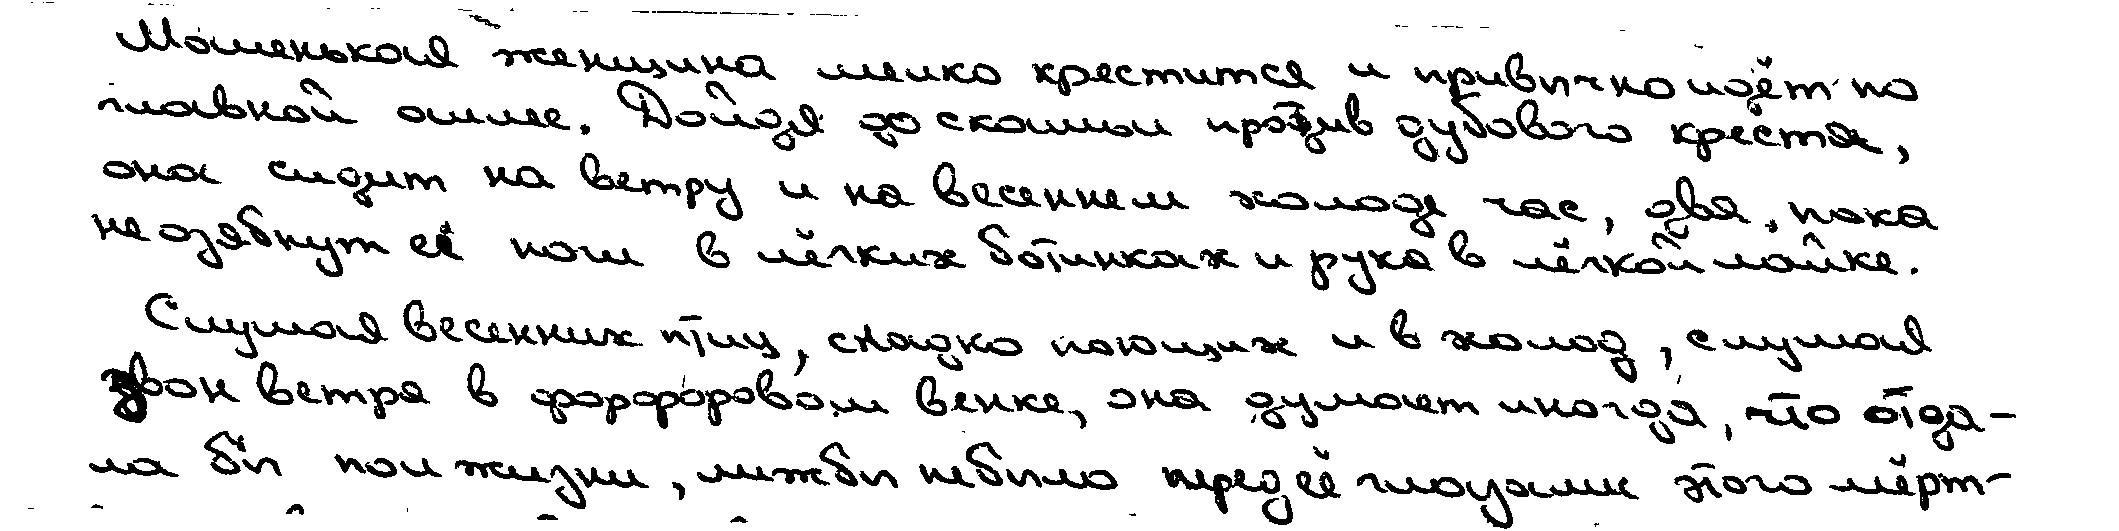 Маленькая женщина мелко крестится и привычно идёт по
главной аллее. Дойдя до скамьи против дубового креста,
она сидит на ветру и на весеннем холоде час, два, пока
не озябнут её ноги в лёгких ботинках и рука в лёгкой лайке.
Слушая весенних птиц, сладко поющих и в холод, слушая
звон ветра в фарфоровом венке, она думает иногда, что отда-
ла бы пол жизни, лишь бы не было перед её глазами этого мёрт-